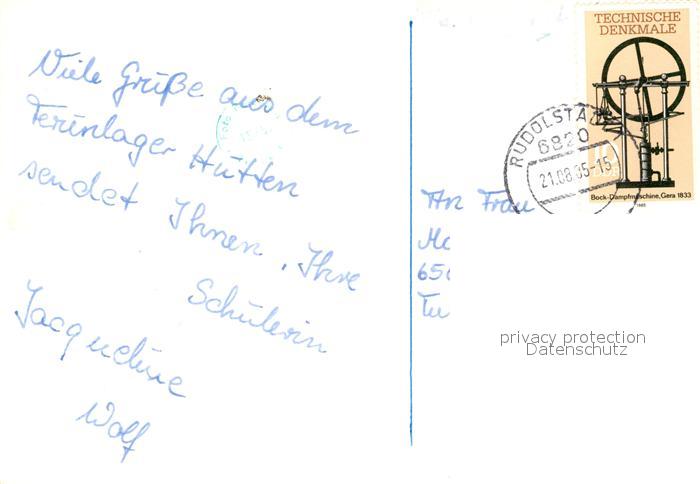 Viele Grüße aus dem
Ferienlager Hütten
sendet Ihnen, Ihre
Schülerin
Jacqueline
Wolf
TECHNISCHE
DENKMALE
10
DDR
Bock-Dampfmaschine, Gera 1833
1985
RUDOLSTADT
6820
21.08.85-15
An Frau
650
privacy protection
Datenschutz